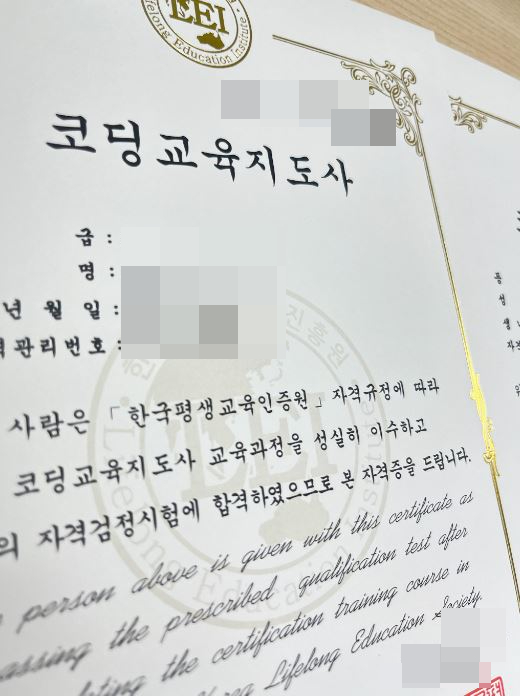 LEEI
Lifelong Education Institute
코딩교육지도사
급 :
명 :
년 월 일 :
격관리번호 :
사람은 「한국평생교육인증원」 자격규정에 따라
코딩교육지도사 교육과정을 성실히 이수하고
의 자격검정시험에 합격하였으므로 본 자격증을 드립니다.
person above is given with this certificate as
assing the prescribed qualification test after
leting the certification training course in
Lifelong Education Society.